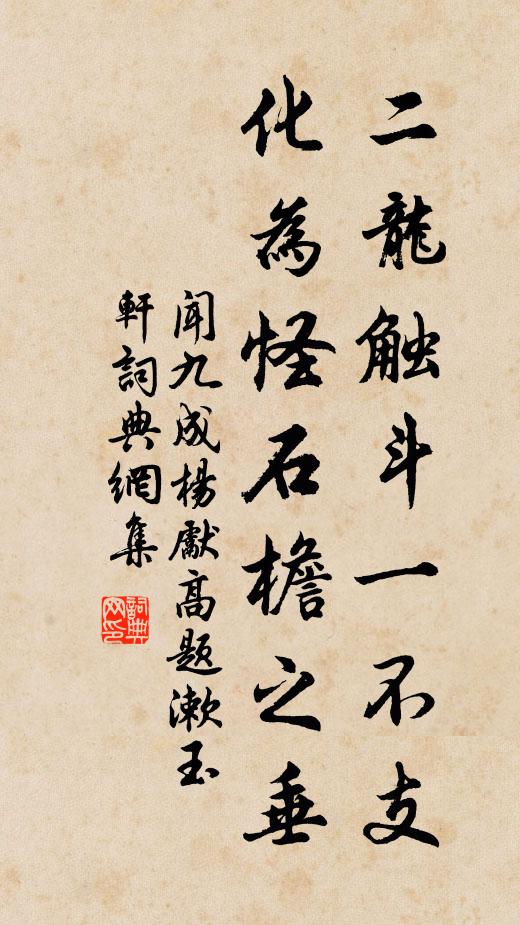 二龍触斗一不支
化為怪石檐之垂
聞九成楊獻高題漱玉
軒詞典網集
詞典网印